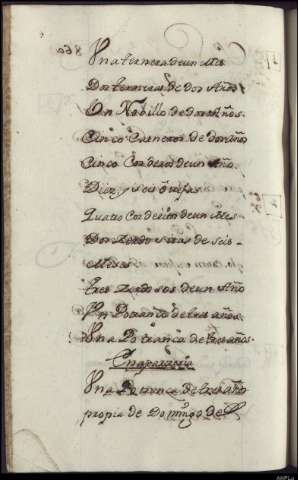 Una ternera de un Mes
Dos terneras de dos Años
Un Nobillo de dos años.
Cinco Carneros de dos años
Cinco Corderos de un Año.
Diez y seis obejas
Quatro Corderos de un Mes
Dos Zerdo de seis
Meses
tres Zerdosos de un Año
Un Potranco de tres años
Una Potranca de tres años.
En aparzería
Una Potranca de tres años
propia de Domingo de